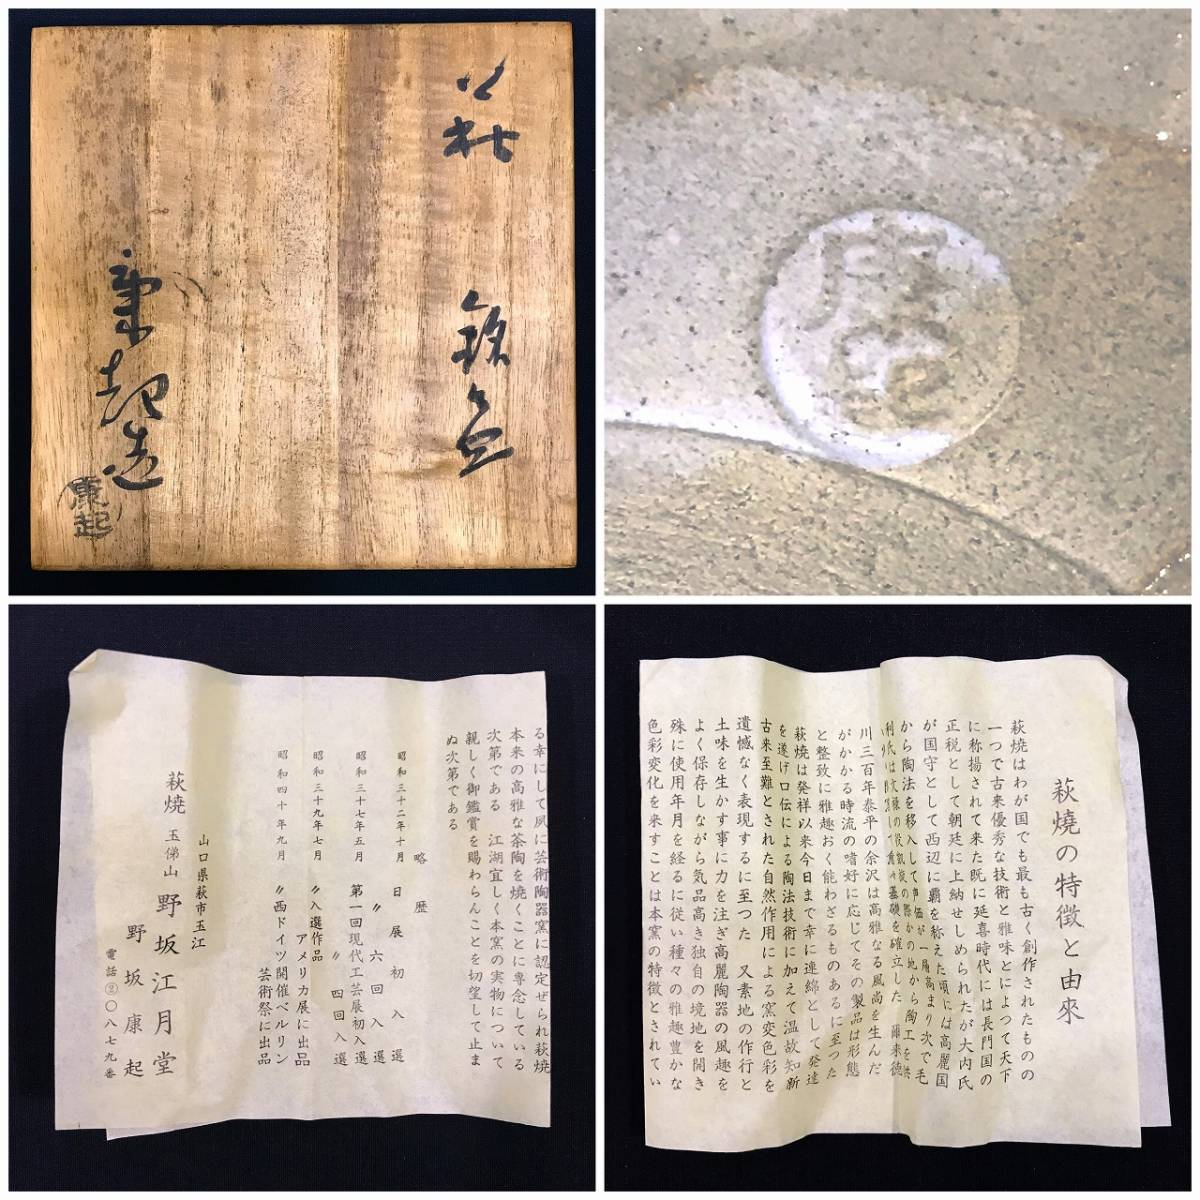 萩
銘々皿
康起造
康起
康起
る幸にして夙に芸術陶器窯に認定ぜられ萩焼
本来の高雅な茶陶を焼くことに専念している
次第である 江湖宜しく本窯の実物について
親しく御鑑賞を賜わらんことを切望して止ま
ぬ次第である
略歴
昭和三十二年十月 日展初入選
〃 六回入選
昭和三十七年五月 第一回現代工芸展初入選
〃 四回入選
昭和三十九年七月 〃入選作品
アメリカ展に出品
昭和四十年九月 〃西ドイツ開催ベルリン
芸術祭に出品
山口県萩市玉江
萩焼 玉佛山 野坂江月堂
野坂康起
電話②〇八七九番
萩焼の特徴と由來
萩焼はわが国でも最も古く創作されたものの
一つで古来優秀な技術と雅味とによつて天下
に称揚されて来た既に延喜時代には長門国の
正税として朝廷に上納せしめられたが大内氏
が国守として西辺に覇を称えた頃には高麗国
から陶法を移入して声価が一層高まり次で毛
利氏は文祿の役凱旋の際かの地から陶工を供
基礎を確立した 爾来徳
川三百年泰平の余沢は高雅なる風尚を生んだ
がかかる時流の嗜好に応じてその製品は形態
と整致に雅趣おく能わざるものあるに至つた
萩焼は発祥以来今日まで幸に連綿として発達
を遂げ口伝による陶法技術に加えて温故知新
古来至難とされた自然作用による窯変色彩を
遺憾なく表現するに至つた 又素地の作行と
土味を生かす事に力を注ぎ高麗陶器の風趣を
よく保存しながら気品高き独自の境地を開き
殊に使用年月を経るに従い種々の雅趣豊かな
色彩変化を来すことは本窯の特徴とされてい